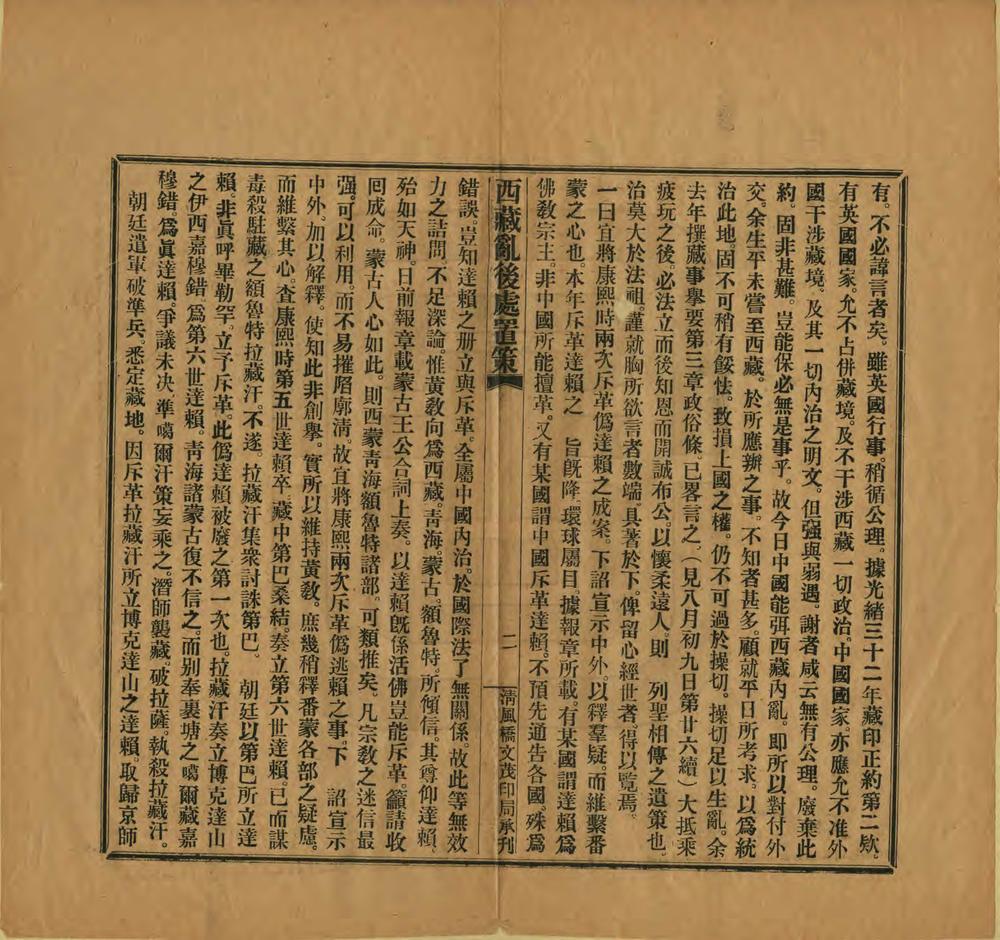 有。不必諱言者矣。雖英國行事。稍循公理。據光緒三十二年藏印正約第二欵。
有英國國家。允不占併藏境。及不干涉西藏一切政治。中國國家。亦應允不准外
國干涉藏境。及其一切內治之明文。但強與弱遇。謝者咸云無有公理。廢棄此
約。固非甚難。豈能保必無是事乎。故今日中國能弭西藏內亂。即所以對付外
交。余生平未嘗至西藏。於所應辦之事。不知者甚多。顧就平日所考求。以爲統
治此地。固不可稍有餒怯。致損上國之權。仍不可過於操切。操切足以生亂。余
去年撰藏事擧要第三章政俗條。已畧言之、（見八月初九日第廿六續）大抵乘
疲玩之後。必法立而後知恩。而開誠布公。以懷柔遠人。則 列聖相傳之遺策也。
治莫大於法祖。謹就胸所欲言者數端。具著於下。俾留心經世者。得以覽焉、
一曰宜將康熙時兩次斥革僞達賴之成案。下詔宣示中外。以釋羣疑。而維繫番
蒙之心也。本年斥革達賴之 旨旣降。環球屬目。據報章所載。有某國謂達賴爲
佛敎宗主。非中國所能擅革。又有某國謂中國斥革達賴。不預先通告各國。殊爲
西藏亂後處置策 二 淸風橋文茂印局承刋
錯誤。豈知達賴之册立與斥革。全屬中國內治。於國際法了無關係。故此等無效
力之詰問。不足深論。惟黃敎向爲西藏。靑海。蒙古。額魯特。所傾信。其尊仰達賴、
殆如天神。日前報章載蒙古王公合詞上奏。以達賴旣係活佛豈能斥革。籲請收
回成命。蒙古人心如此。則西蒙靑海額魯特諸部。可類推矣。凡宗敎之迷信最
強。可以利用。而不易摧陷廓淸。故宜將康熙兩次斥革僞逃賴之事。下 詔宣示
中外。加以解釋。使知此非創擧。實所以維持黃敎。庶幾稍釋番蒙各部之疑慮。
而維繫其心。查康熙時第五世達賴卒。藏中第巴桑結。奏立第六世達賴。已而謀
毒殺駐藏之額魯特拉藏汗。不遂。拉藏汗集衆討誅第巴。 朝廷以第巴所立達
賴。非眞呼畢勒罕。立予斥革。此僞達賴被廢之第一次也。拉藏汗奏立博克達山
之伊西嘉穆錯。爲第六世達賴。靑海諸蒙古復不信之。而別奉裏塘之噶爾藏嘉
穆錯。爲眞達賴。爭議未决、準噶爾汗策妄乘之。潛師襲藏。破拉薩。執殺拉藏汗。
朝廷遣軍破準兵。悉定藏地。因斥革拉藏汗所立博克達山之達賴。取歸京師